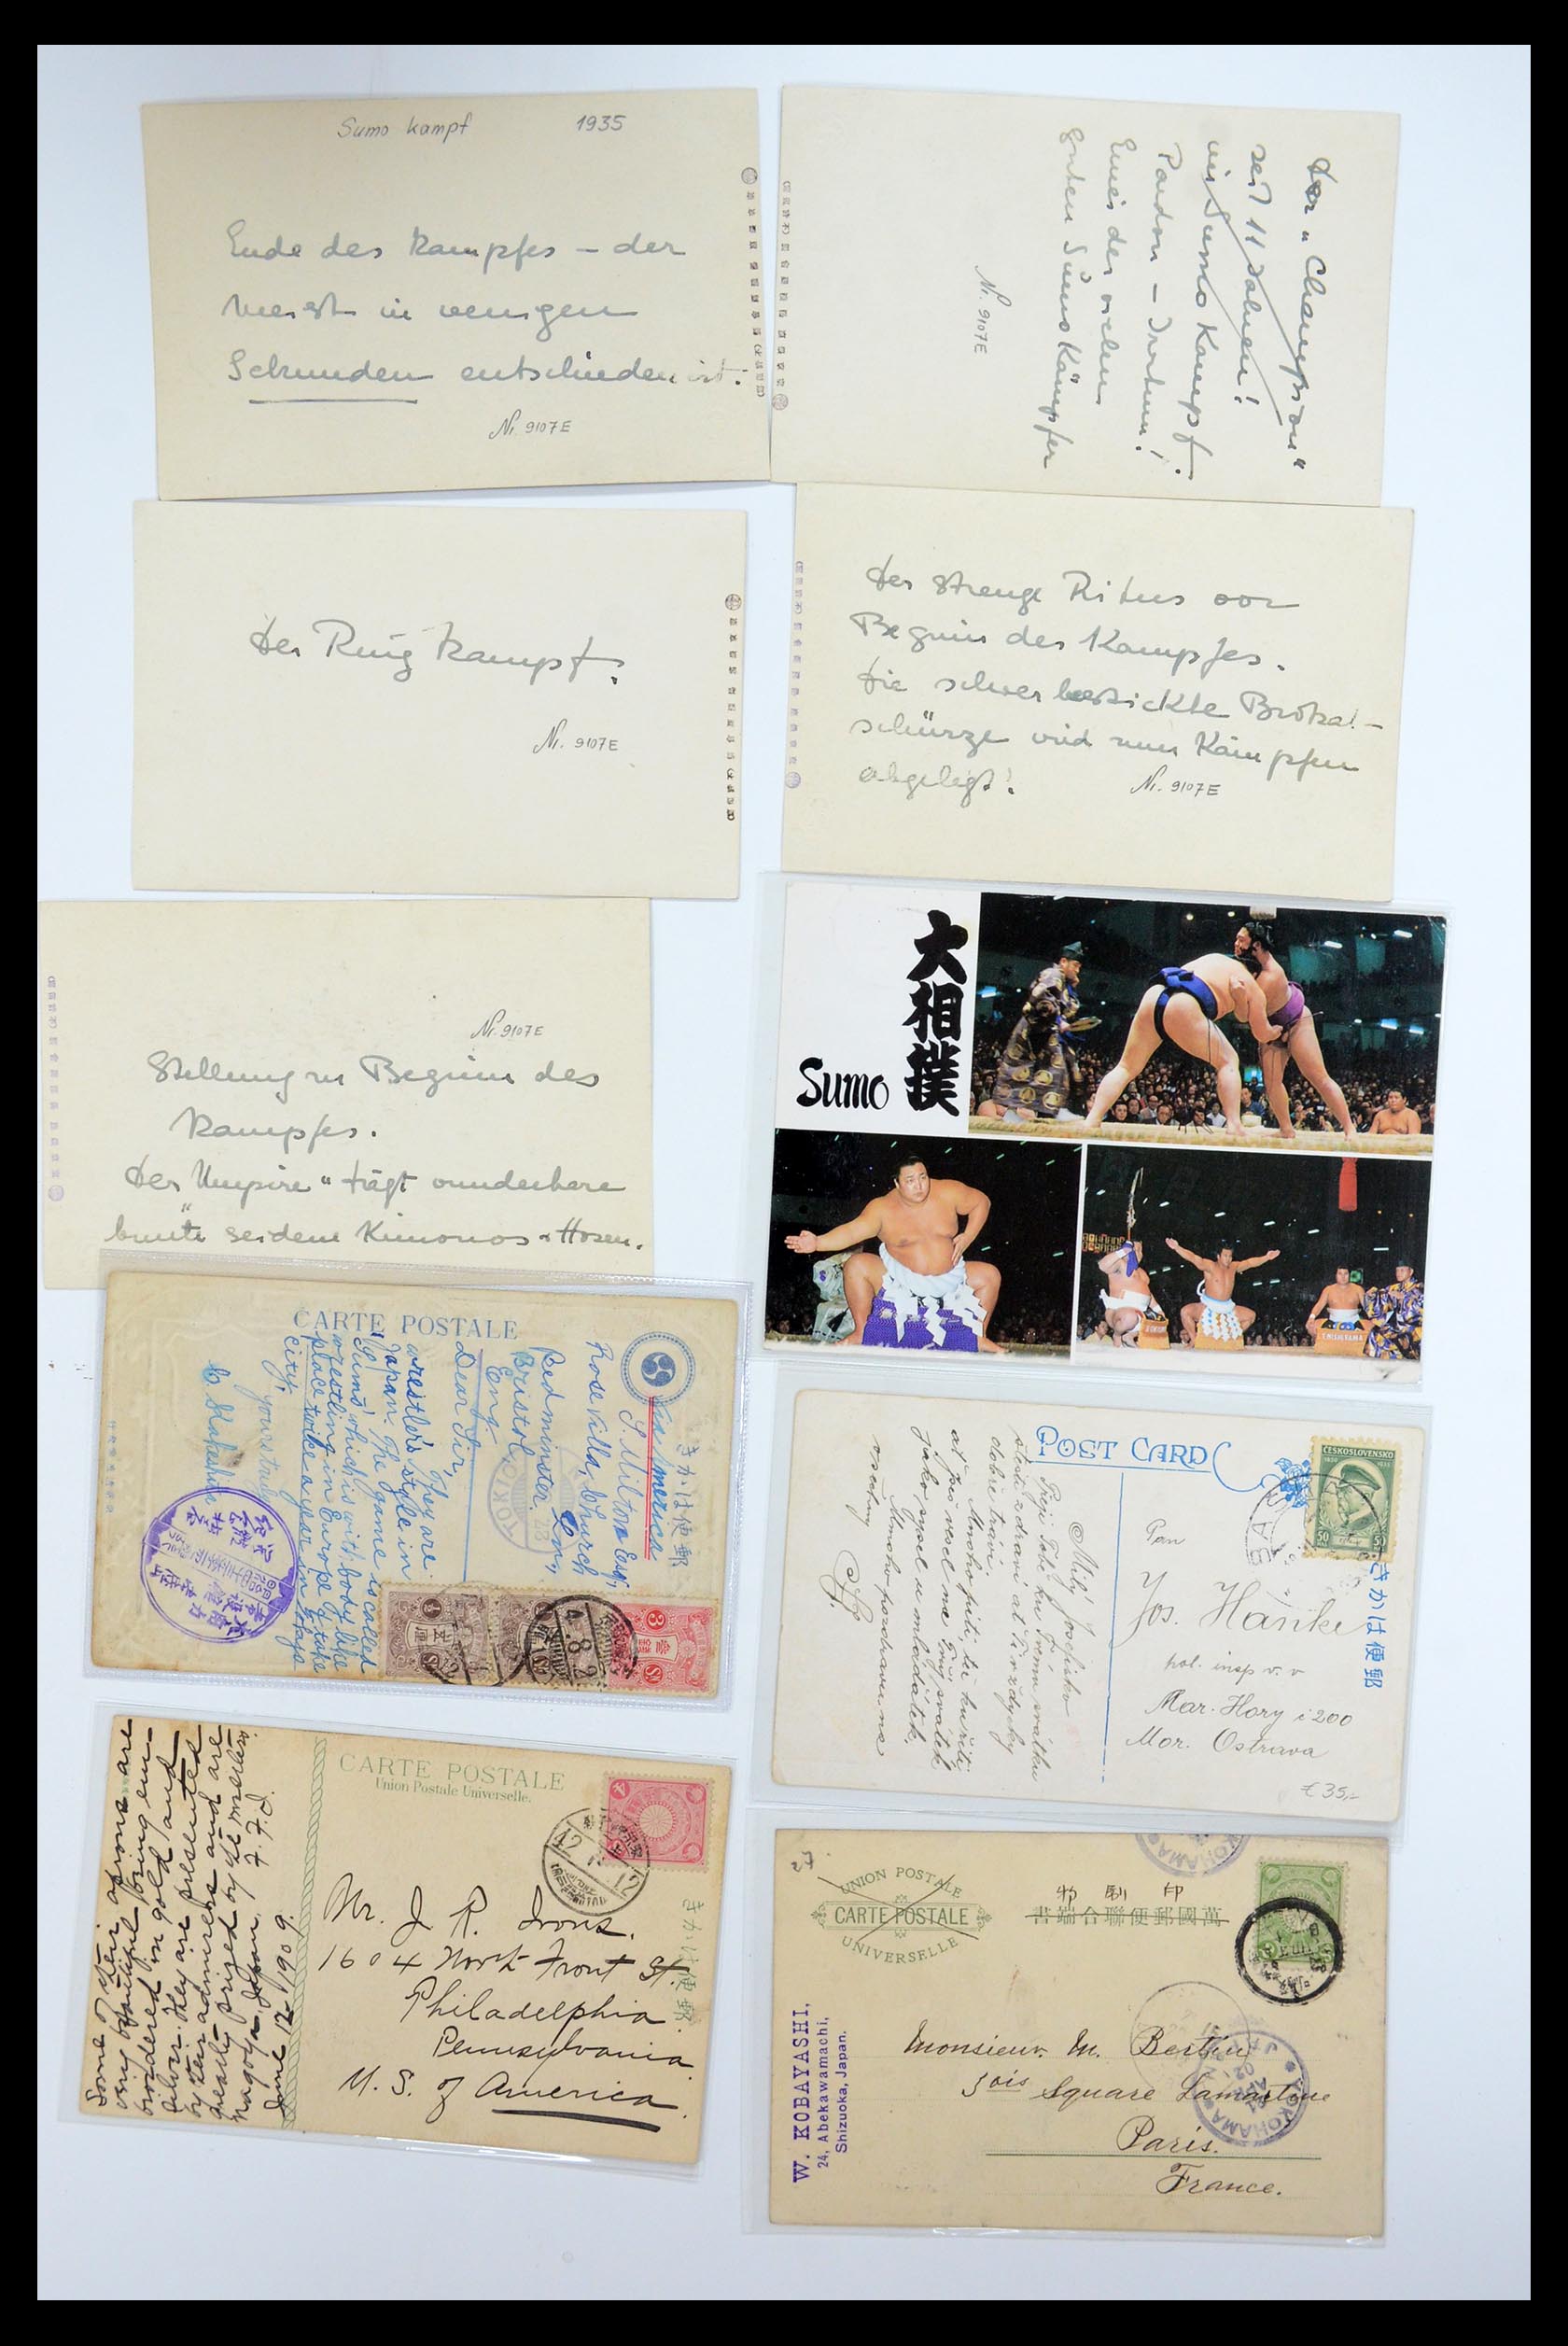 Sumo kampf 1935
Ende des Kampfes – der
meist in wenigen
Sekunden entschieden ist.
Nr. 9107E
Der "Champion"
seit 11 Jahren!
im Sumo Kampf.
Pardon – Irrtum!
Einer der vielen
guten Sumo Kämpfer
Nr. 9107E
Der Ring kampf.
Nr. 9107E
Der strenge Ritus vor
Beginn des Kampfes.
Die schwer bestickte Brokat-
schürze wird zum Kämpfen
abgelegt!
Nr. 9107E
Nr. 9107E
Stellung zu Beginn des
Kampfes.
Der "Umpire" trägt wunderbare
bunte seidene Kimonos + Hosen.
大相撲
Sumo
CARTE POSTALE
きかは便郵
Via America
S. Milton Esq,
Rose Villa, Church
Bedminster.
Bristol,
Eng.
Dear Sir,
They are
wrestler's style in
Japan. The game is called
'Sumo' which is with body like
wrestling in Europe. It take
place twice a year in this
city.
yours truly
POST CARD
ČESKOSLOVENSKO
50
きかは便郵
Pan
Jos. Hanke
pol. insp v. v
Mar. Hory č 200
Mor. Ostrava
€ 35,-
Milý Josefínko
CARTE POSTALE
Union Postale Universelle.
きかは便郵
Mr. J. R. Irons.
1604 North Front St.
Philadelphia.
Pennsylvania
U. S. of America.
Some of their aprons are
very beautiful being em-
broidered in gold and
silver. They are presented
by their admirers and are
greatly prized by the wrestlers.
Nagoya, Japan. F. F. D.
June 12 - 1909.
27
UNION POSTALE
CARTE POSTALE
UNIVERSELLE
印刷物
萬國郵便聯合端書
YOKOHAMA
W. KOBAYASHI,
24, Abekawamachi,
Shizuoka, Japan.
Monsieur M. Berthu
5 bis Square Lamartine
Paris.
France.